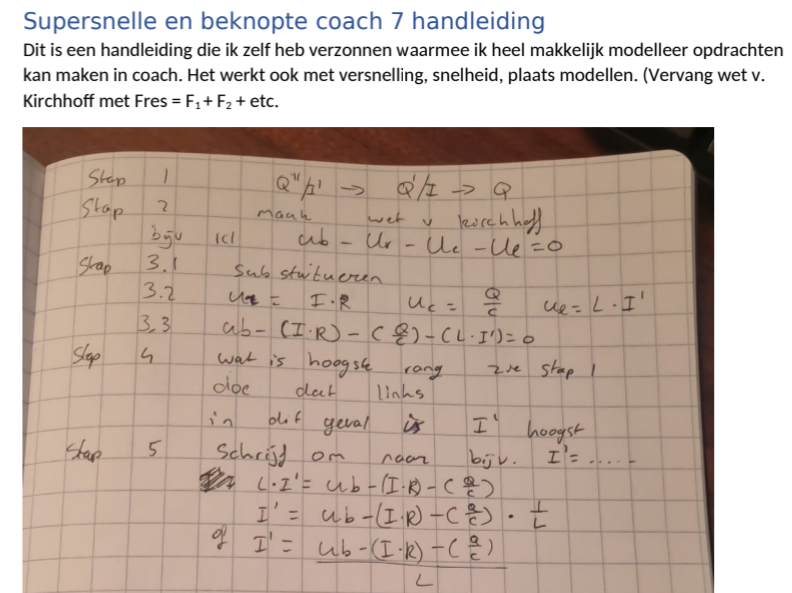 Supersnelle en beknopte coach 7 handleiding
Dit is een handleiding die ik zelf heb verzonnen waarmee ik heel makkelijk modelleer opdrachten
kan maken in coach. Het werkt ook met versnelling, snelheid, plaats modellen. (Vervang wet v.
Kirchhoff met Fres = F₁ + F₂ + etc.
Stap 1 Q''/I' → Q'/I → Q
Stap 2 maak wet v kirchhoff
bijv rcl ub - Ur - Uc - Ue = 0
Stap 3.1 Substitueren
3.2 ur = I·R Uc = Q/c Ue = L·I'
3.3 ub - (I·R) - (Q/c) - (L·I') = 0
Stap 4 wat is hoogste rang zie stap 1
doe dat links
in dit geval is I' hoogst
Stap 5 Schrijf om naar bijv. I' = .....
L·I' = ub - (I·R) - (Q/c)
I' = ub - (I·R) - (Q/c) · 1/L
of I' = ub - (I·R) - (Q/c) / L